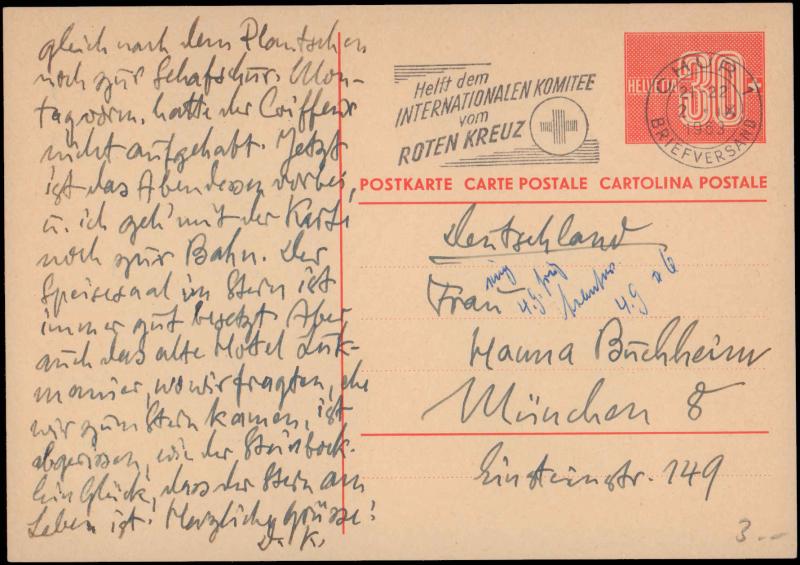 gleich nach dem Plantschen
noch zur Schafschur. Mon-
tagvorm. hatte der Coiffeur
nicht aufgehabt. Jetzt
ist das Abendessen vorbei,
u. ich geh' mit der Karte
noch zur Bahn. Der
Speisesaal im Stern ist
immer gut besetzt. Aber
auch das alte Hotel Luk-
manier, wo wir fragten, ehe
wir zum Stern kamen, ist
abgerissen, wie der Steinbock.
Ein Glück, dass der Stern am
Leben ist. Herzliche Grüsse!
D. K.
Helft dem
INTERNATIONALEN KOMITEE
vom
ROTEN KREUZ
HELVETIA 30
CHUR
22
1963
BRIEFVERSAND
POSTKARTE CARTE POSTALE CARTOLINA POSTALE
Deutschland
Frau
4.9
4.9
Hanna Buchheim
München 8
Einsteinstr. 149
3.--